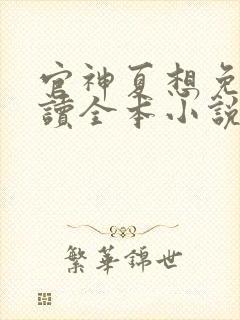 官神夏想免
讀全本小說
繁華錦世